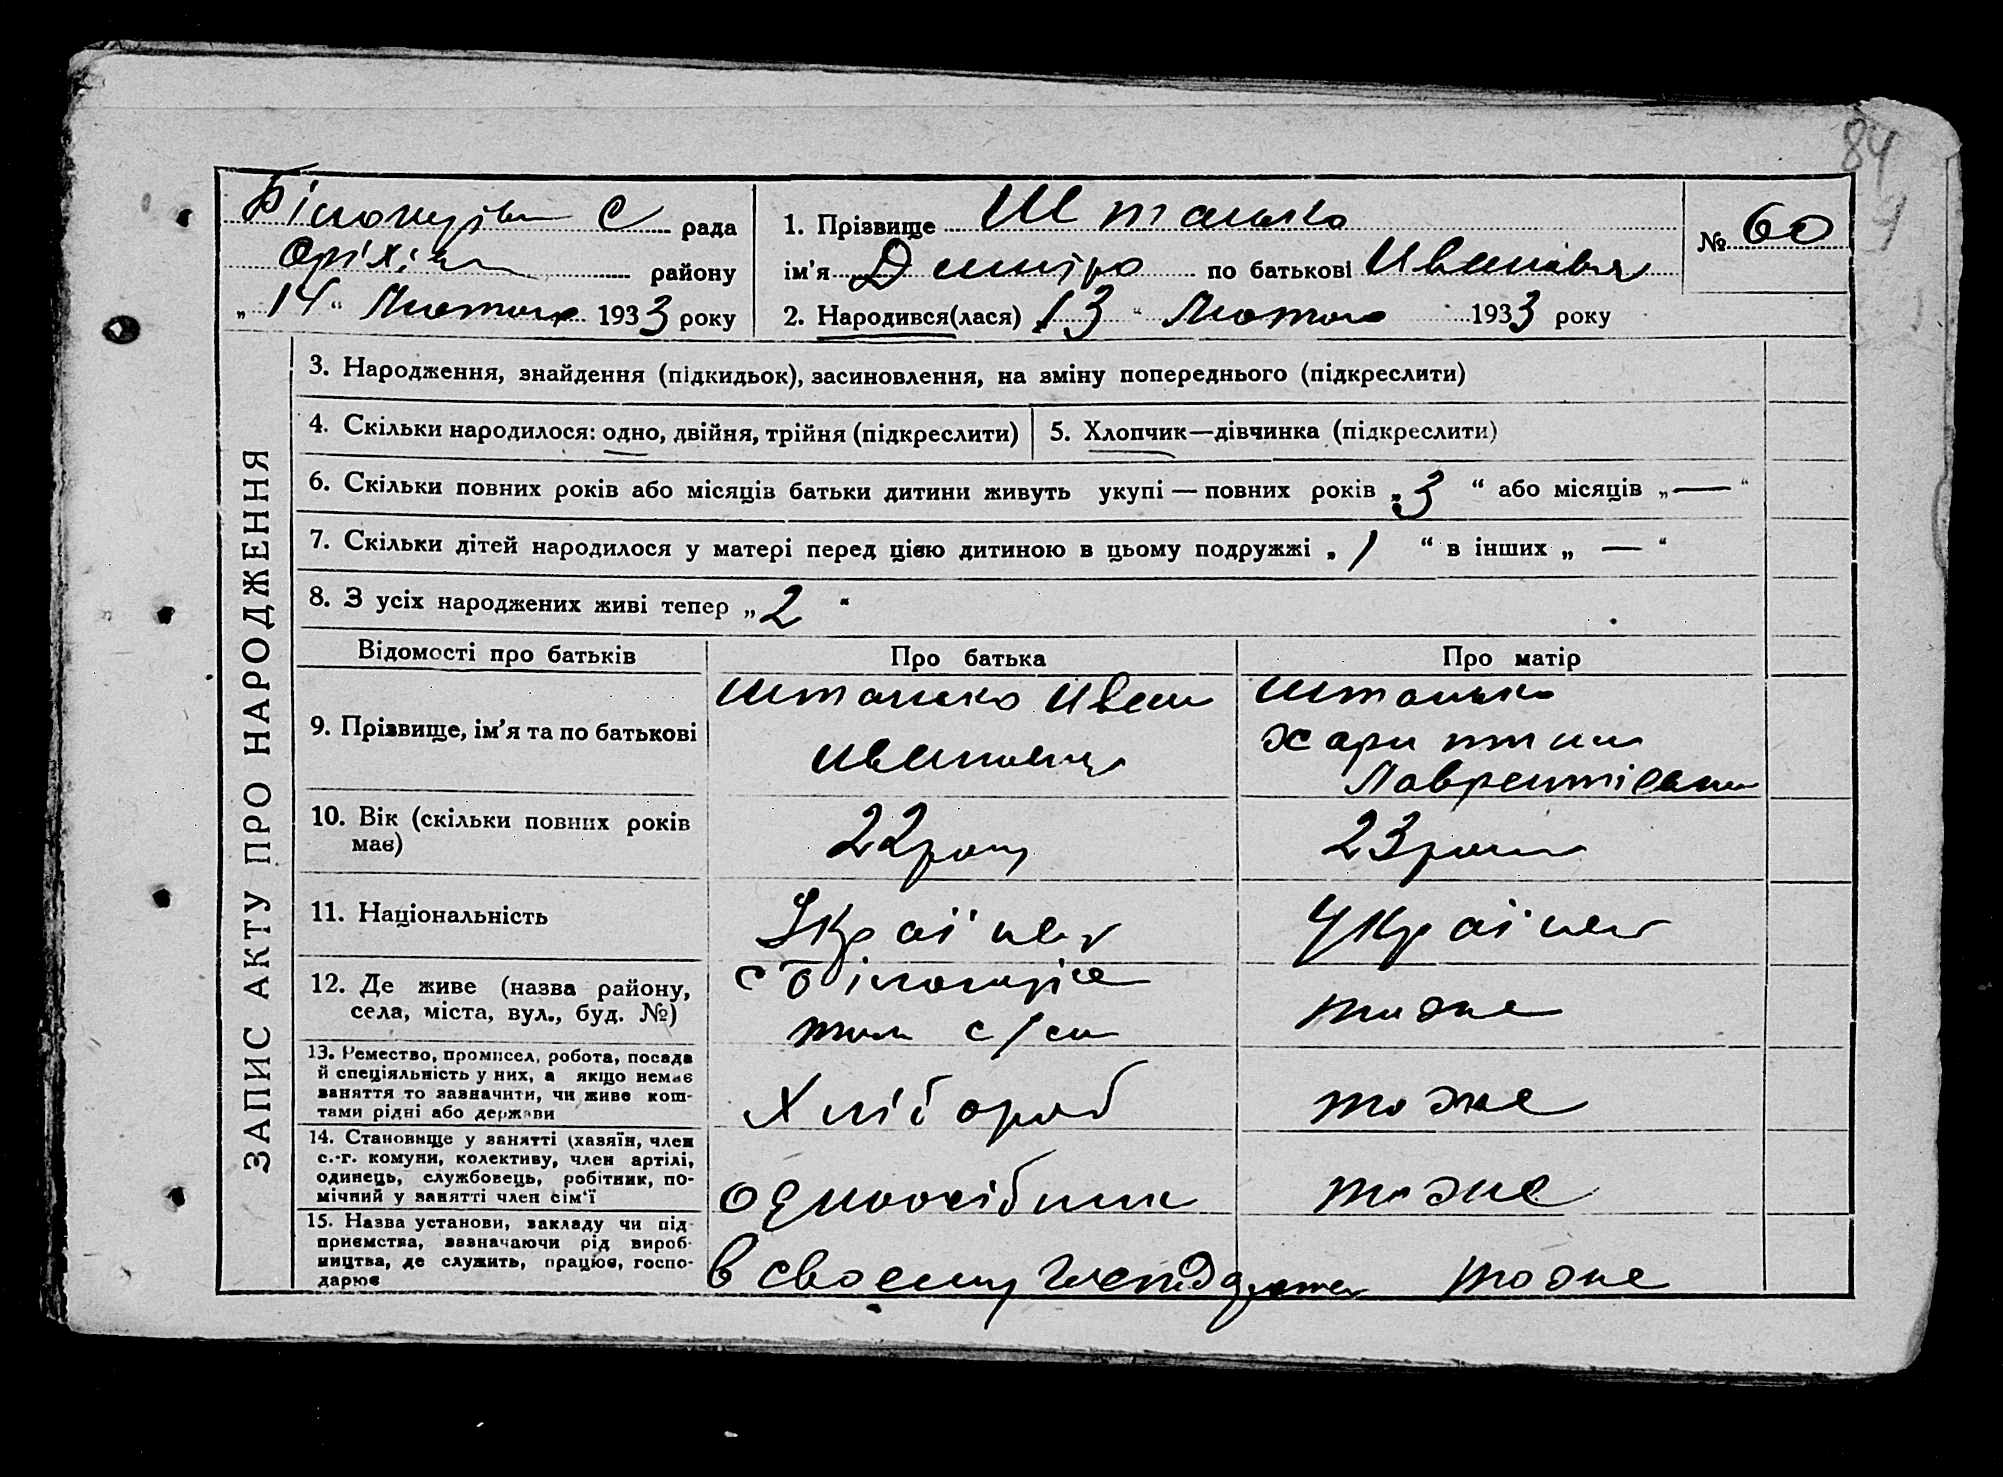 84
Білогірівс С рада
Оріхів району
„14“ Лютого 1933 року
1. Прізвище Штанько
ім’я Дмитро по батькові Иванівич
2. Народився(лася) 13 “ Лютого 1933 року
№ 60
ЗАПИС АКТУ ПРО НАРОДЖЕННЯ
3. Народження, знайдення (підкидьок), засиновлення, на зміну попереднього (підкреслити)
4. Скільки народилося: одно, двійня, трійня (підкреслити)
5. Хлопчик—дівчинка (підкреслити)
6. Скільки повних років або місяців батьки дитини живуть укупі — повних років „3“ або місяців „—“
7. Скільки дітей народилося у матері перед цією дитиною в цьому подружжі „1“ в інших „—“
8. З усіх народжених живі тепер „2“
Відомості про батьків
Про батька
Про матір
9. Прізвище, ім’я та по батькові
Штанько Иван
Иванович
Штанько
Харитина
Лаврентіевна
10. Вік (скільки повних років
має)
22 роки
23 роки
11. Національність
Украінец
Украінец
12. Де живе (назва району,
села, міста, вул., буд. №)
с Білогоріе
с/
тоже
13. Ремество, промисел, робота, посада
й спеціяльність у них, а якщо немає
заняття то зазначити, чи живе кош-
тами рідні або держави
Хлібороб
тоже
14. Становище у занятті (хазяїн, член
с.-г. комуни, колективу, член артілі,
одинець, службовець, робітник, по-
мічний у занятті член сім‘ї
одноосібник
тоже
15. Назва установи, закладу чи під-
приємства, зазначаючи рід вироб-
ництва, де служить, працює, госпо-
дарює
в своему господарстве
тоже